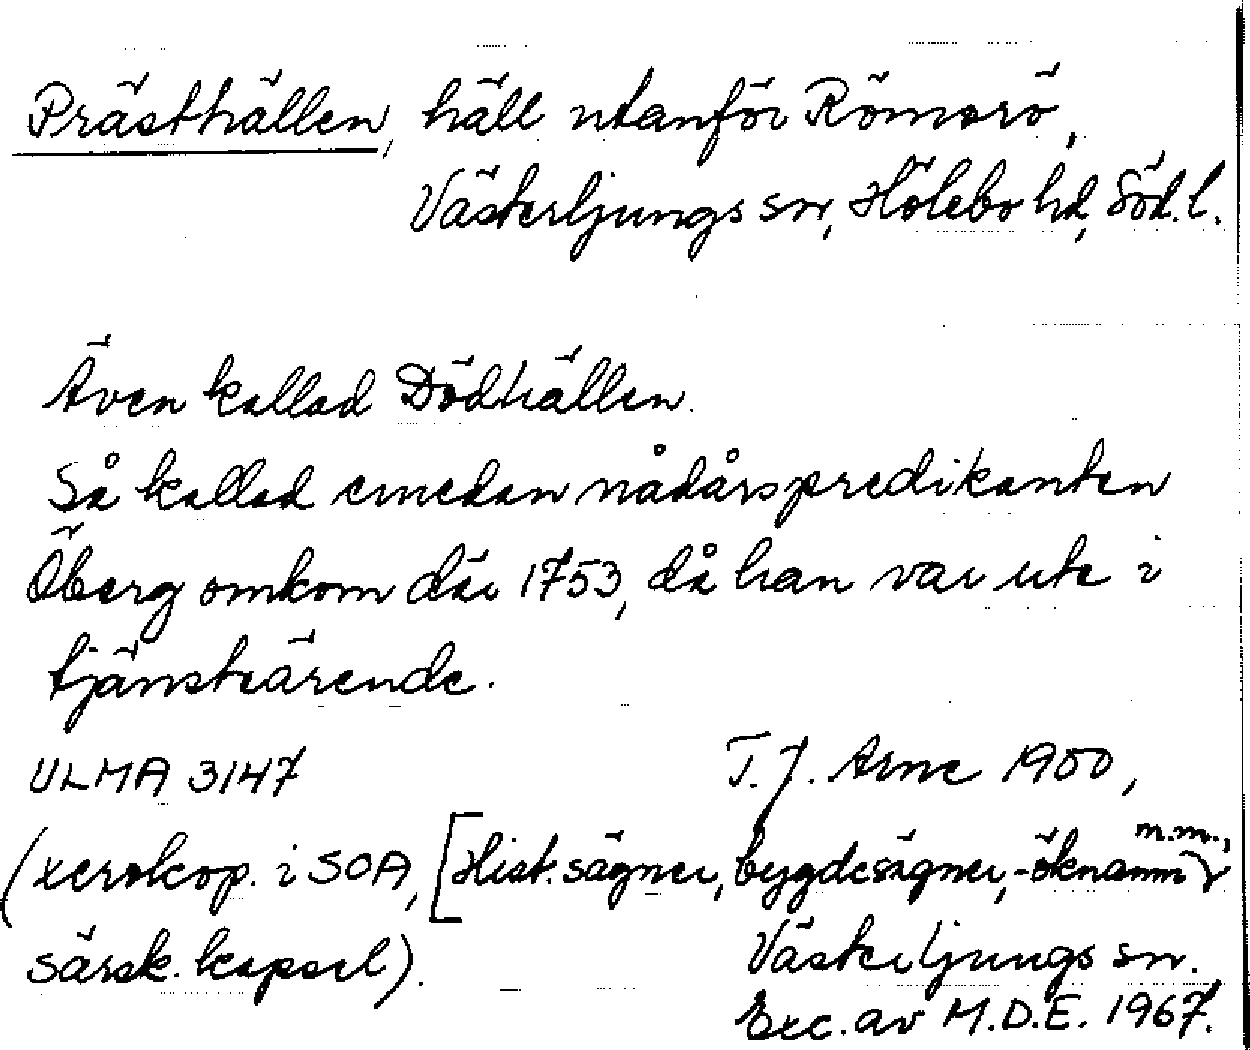 Prästhällen, häll utanför Römorö,
Västerljungs sn, Hölebo hd, Söd.l.
Även kallad Dödhällen.
Så kallad emedan nådårspredikanten
Öberg omkom där 1753, då han var ute i
tjänsteärende.
ULMA 3147 T.J. Arne 1900,
(xerokop. i SOA, [Hist. sägner, bygdesägner, -öknamn m.m.,
särsk. kapsel). Västerljungs sn.
Exc. av M.D.E. 1967.